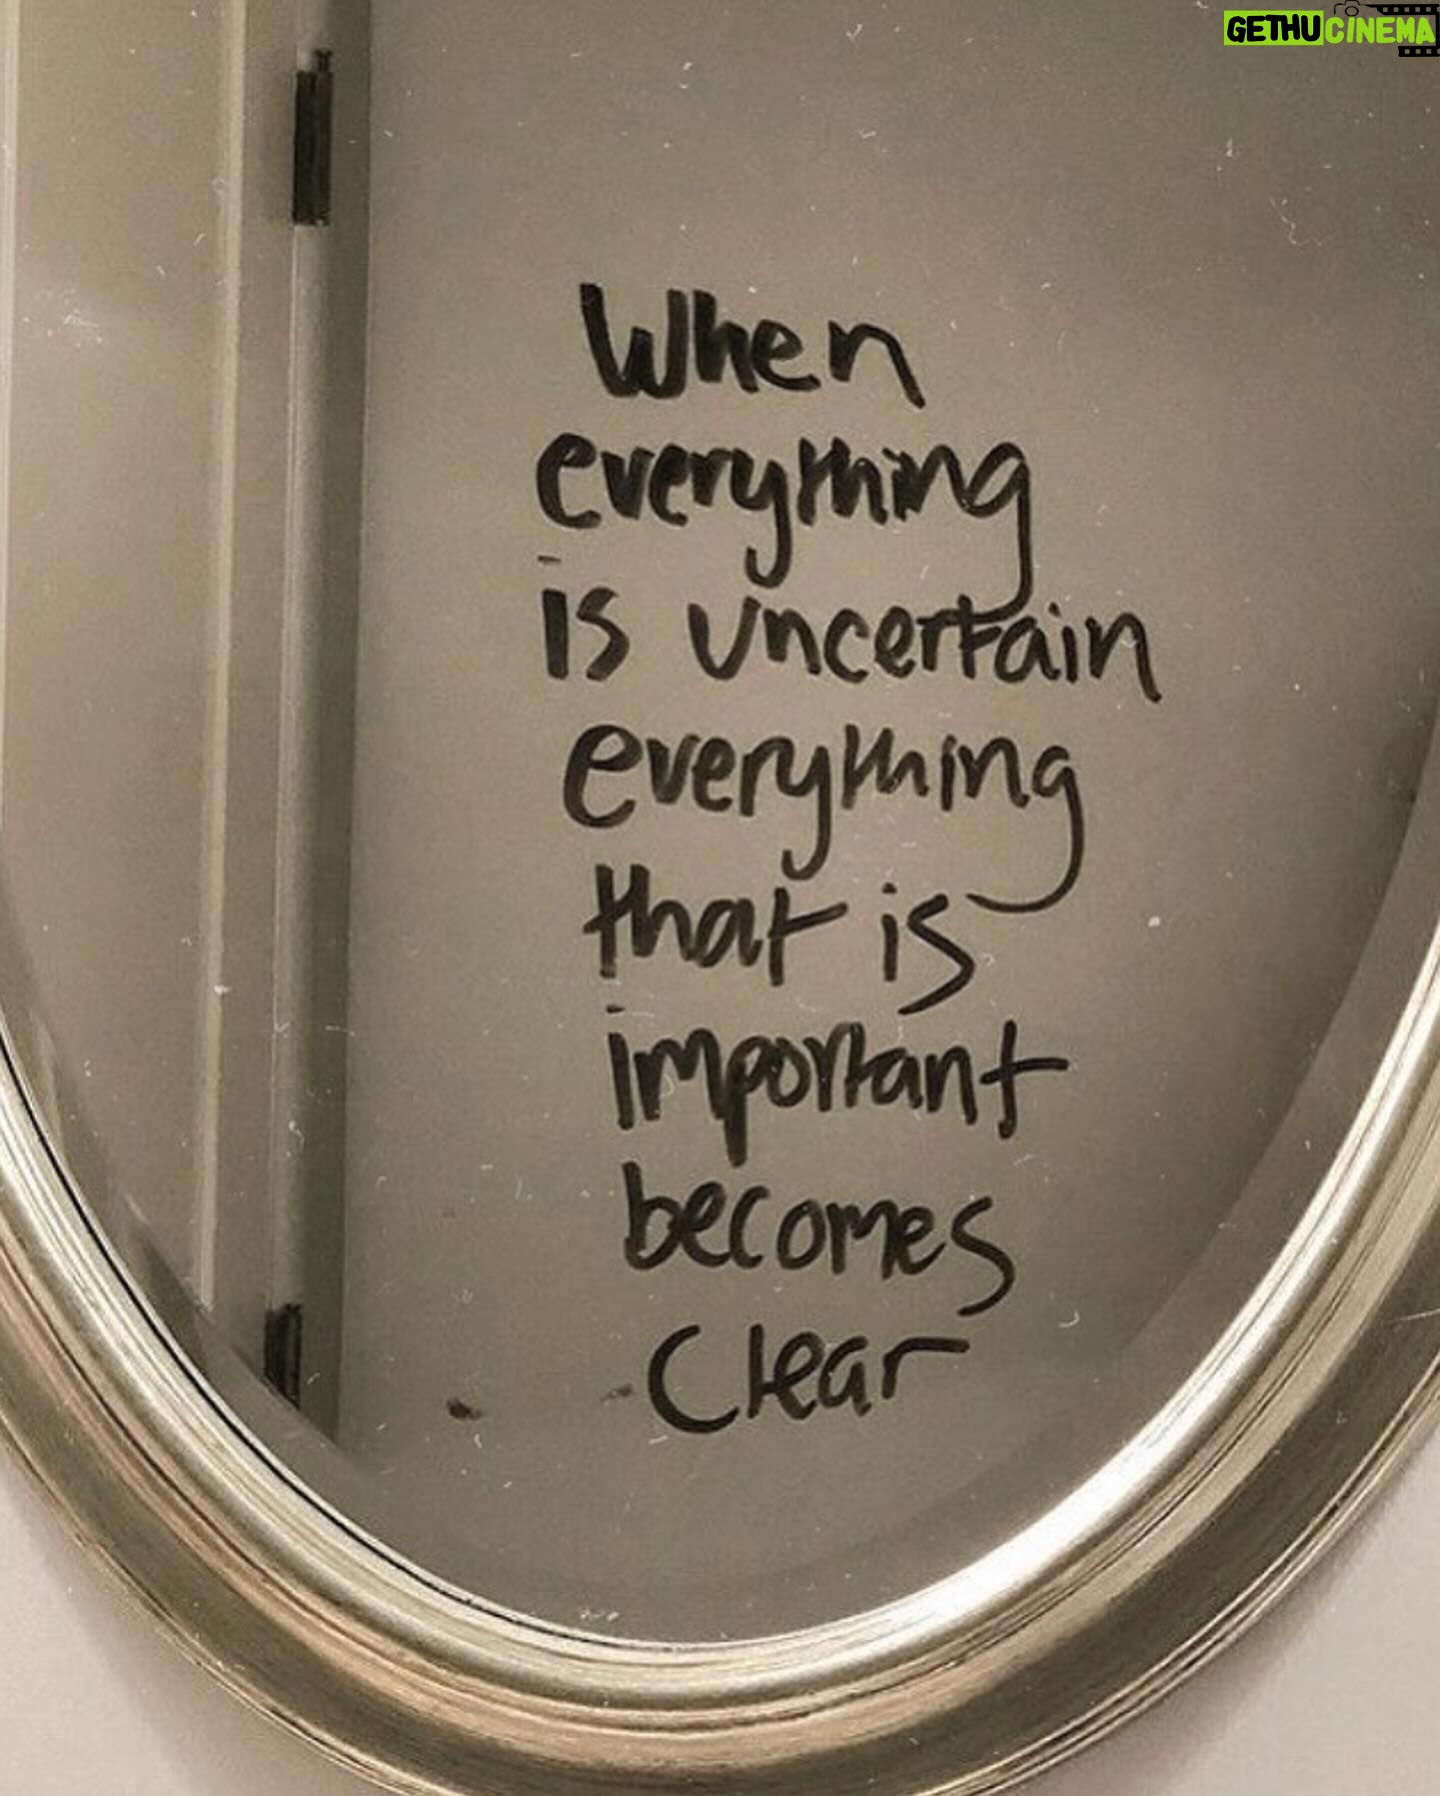 GETHUCINEMA
When
everything
is uncertain
everything
that is
important
becomes
Clear